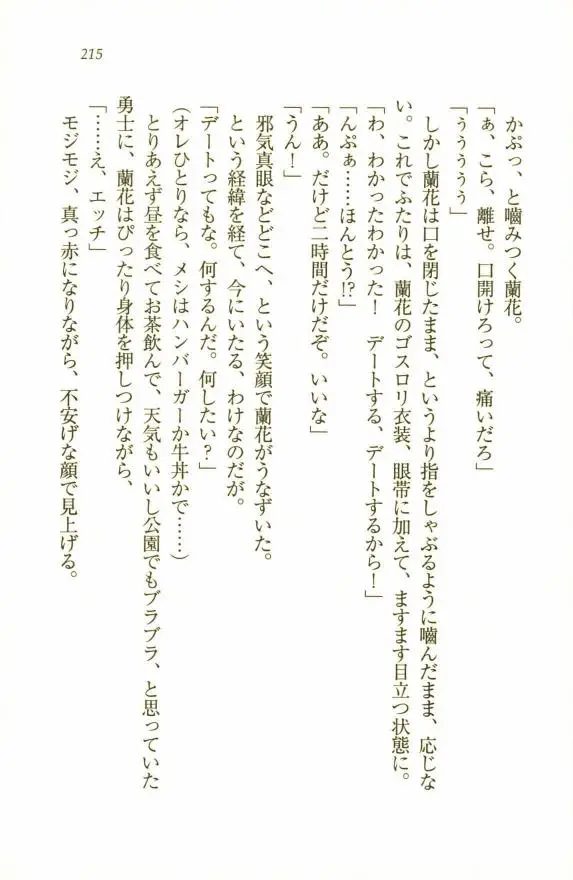 215
かぷっ、と嚙みつく蘭花。
「ぁ、こら、離せ。口開けろって、痛いだろ」
「ぅぅぅぅぅ」
しかし蘭花は口を閉じたまま、というより指をしゃぶるように嚙んだまま、応じな
い。これでふたりは、蘭花のゴスロリ衣装、眼帯に加えて、ますます目立つ状態に。
「わ、わかったわかった！　デートする、デートするから！」
「んぷぁ……ほんとう!?」
「ああ。だけど二時間だけだぞ。いいな」
「うん！」
邪気真眼などどこへ、という笑顔で蘭花がうなずいた。
という経緯を経て、今にいたる、わけなのだが。
「デートってもな。何するんだ。何したい？」
（オレひとりなら、メシはハンバーガーか牛丼かで……）
とりあえず昼を食べてお茶飲んで、天気もいいし公園でもブラブラ、と思っていた
勇士に、蘭花はぴったり身体を押しつけながら、
「……え、エッチ」
モジモジ、真っ赤になりながら、不安げな顔で見上げる。